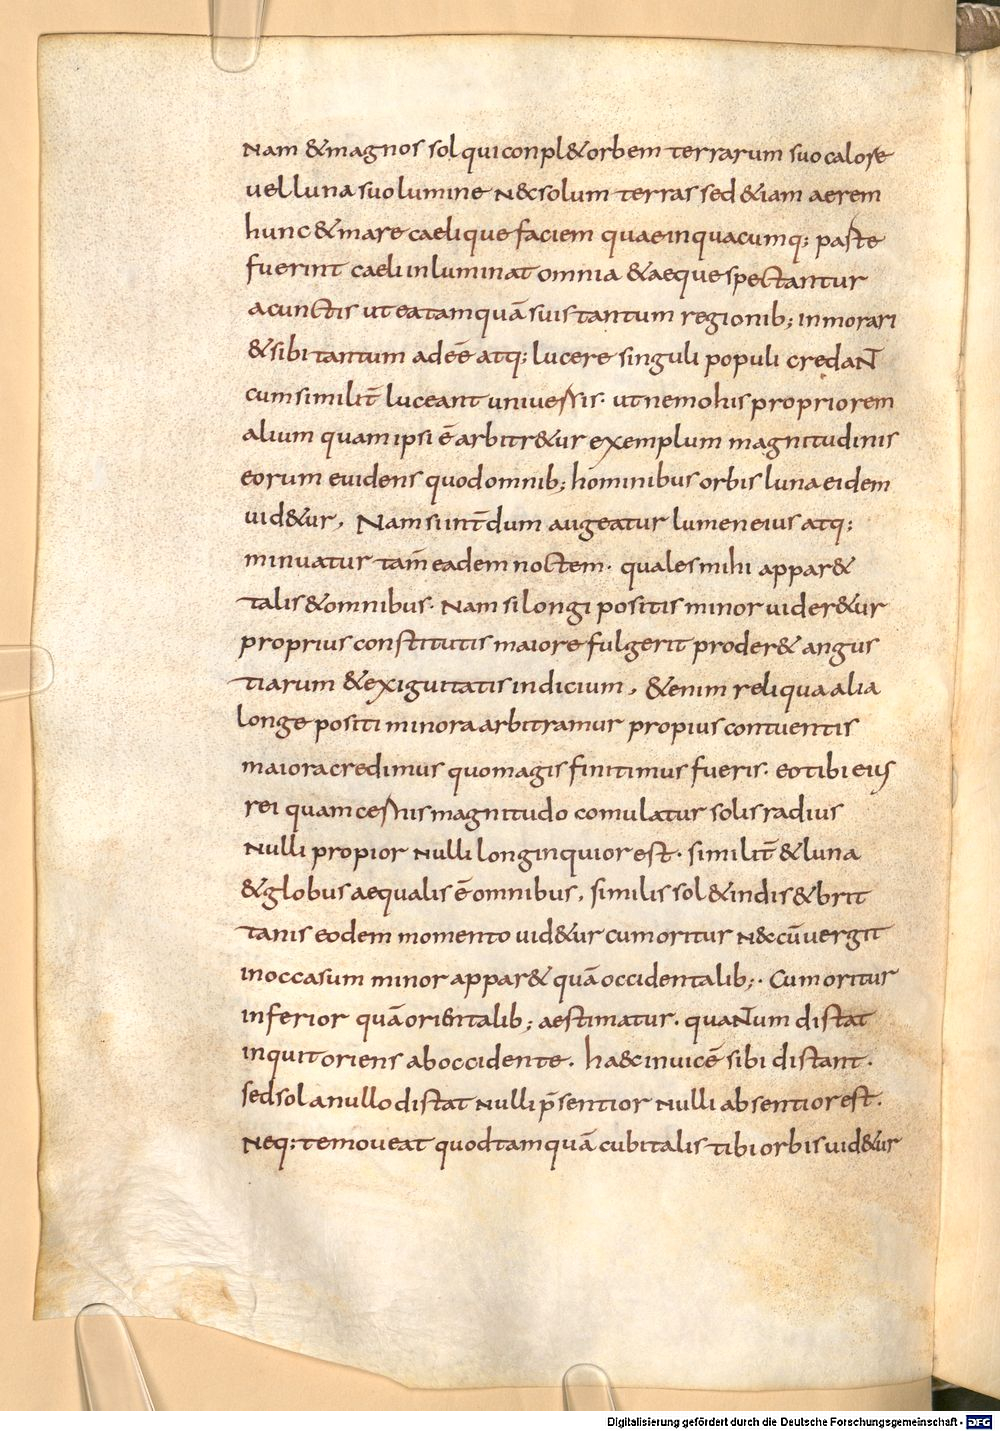 Nam & magnos sol qui conpl& orbem terrarum suo calore
vel luna suo lumine N&c solum terras sed &iam aerem
hunc & mare caelique faciem quae in quacumq; paste
fuerint caeli inluminat omnia & aeque spectantur
a cunctis ut ea tamquā suis tantum regionib; inmorari
& sibi tantum adeē atq; lucere singuli populi credaN̄
cum similit̄ luceant universis· ut nemo his propriorem
alium quam ipsi ē arbitr&ur exemplum magnitudinis
eorum evidens quod omnib; hominibus orbis luna eidem
uid&ur, Nam sunt̄ dum augeatur lumen eius atq;
minuatur tam̄ eadem noctem· quales mihi appar&
talis & omnibus· Nam si longi positis minor uider&ur
proprius constitutis maiore fulgerit proder& angus
tiarum & exiguitatis indicium, &enim reliqua alia
longe positi minora arbitramur propius contuentis
maiora credimus quo magis finitimus fueris· eo tibi eius
rei quam cernis magnitudo comulatur solis radius
Nulli propior Nulli longinquior est· similit̄ & luna
& globus aequalis ē omnibus, similis sol & indis & brit
tanis eodem momento uid&ur cum oritur N&c cū vergit
in occasum minor appar& quā occidentalib;· Cum oritur
inferior quā orientalib; aestimatur· quaN̄um distat
inquit oriens ab occidente· ha&c invicē sibi distant·
sed sol a nullo distat Nulli p̄sentior Nulli absentior est·
Neq; te moveat quod tamquā cubitalis tibi orbis uid&ur
Digitalisierung gefördert durch die Deutsche Forschungsgemeinschaft - DFG